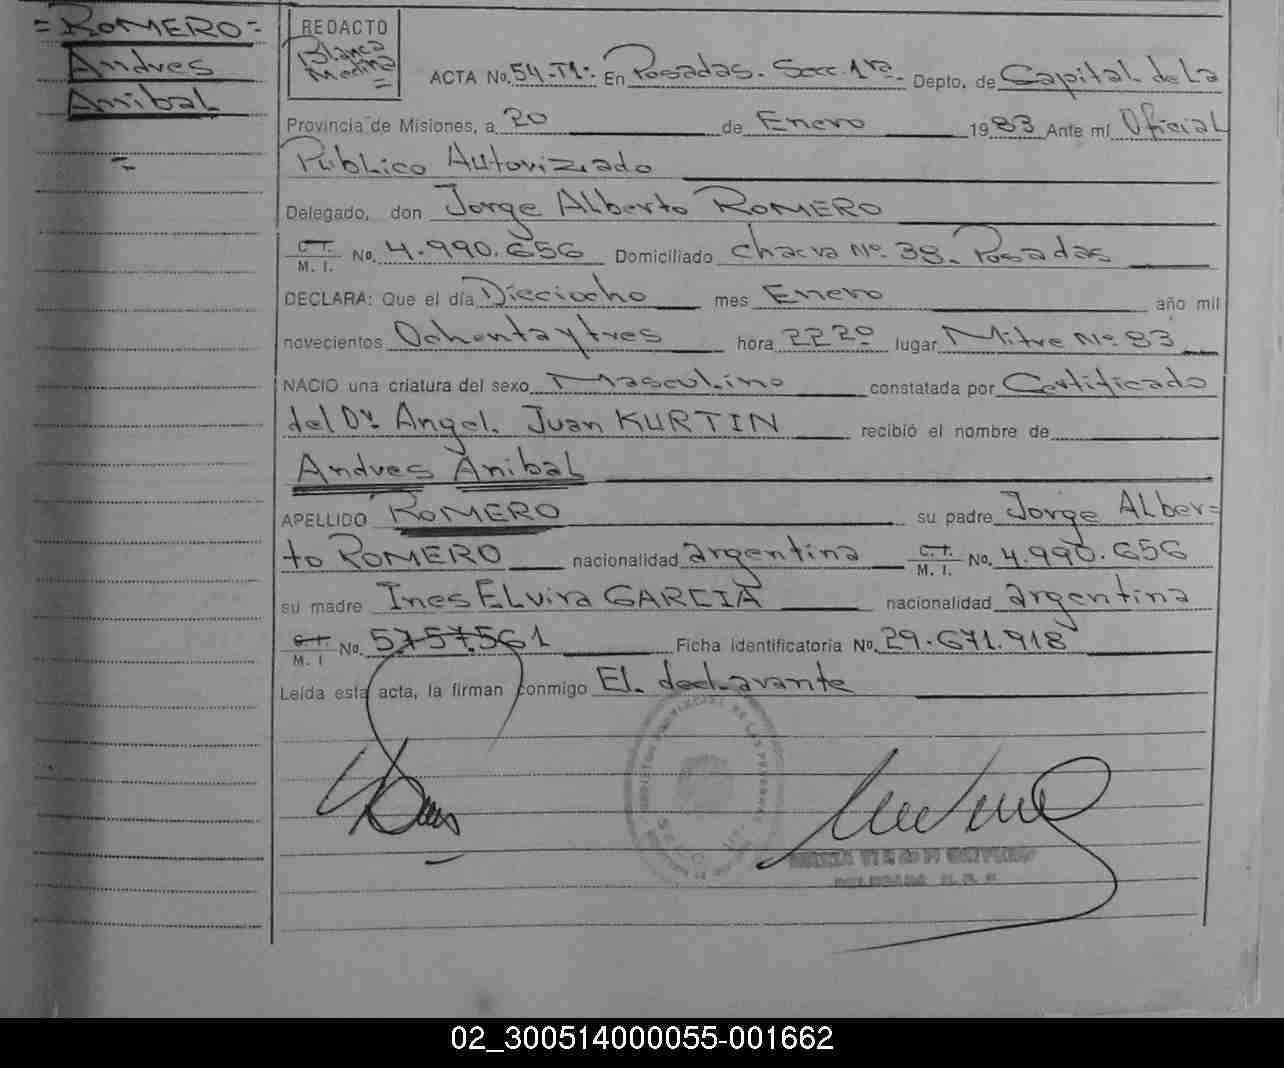 =ROMERO=
Andres
Anibal
=
REDACTO
Blanca
Medina
=
ACTA No. 54-T1- En Posadas. Secc. 1ra. Depto. de Capital de la
Provincia de Misiones, a 20 de Enero 1983 Ante mí Oficial
Público Autorizado
Delegado, don Jorge Alberto ROMERO
C.I. No. 4.990.656 Domiciliado Chacra Nº 38. Posadas
M. I.
DECLARA: Que el día Dieciocho mes Enero año mil
novecientos Ochenta y tres hora 22 20 lugar Mitre Nº 83
NACIO una criatura del sexo Masculino constatada por Certificado
del Dr. Angel. Juan KURTIN recibió el nombre de
Andres Anibal
APELLIDO ROMERO su padre Jorge Alber=
to ROMERO nacionalidad argentina C.I. No. 4.990.656
M. I.
su madre Ines Elvira GARCIA nacionalidad argentina
C.I. No. 5.757.561 Ficha identificatoria No. 29.671.918
M. I
Leída esta acta, la firman conmigo El. declarante
02_300514000055-001662